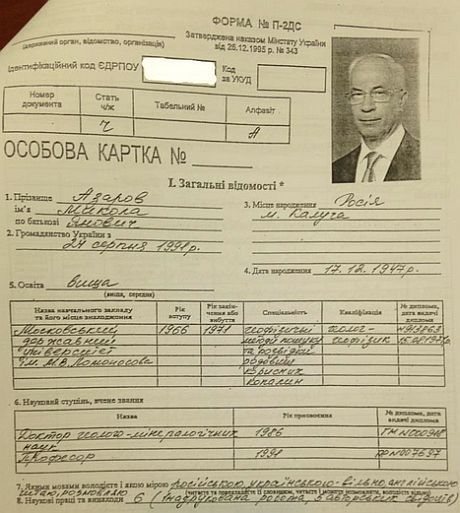 ФОРМА № П-2ДС
Затверджена наказом Мінстату України
від 26.12.1995 р. № 343
(державний орган, відомство, організація)
Ідентифікаційний код ЄДРПОУ
Код
за УКУД
Номер документа Стать ч/ж Табельний № Алфавіт
Ч А
ОСОБОВА КАРТКА №
I. Загальні відомості *
1. Прізвище Азаров
ім'я Микола
по батькові Янович
2. Громадянство України з
24 серпня 1991 р.
3. Місце народження Росія
м. Калуга
4. Дата народження 17.12.1947 р.
5. Освіта Вища
(вища, середня)
Назва навчального закладу та його місце знаходження Рік вступу Рік закінчення або вибуття Спеціальність Кваліфікація № диплома, дата видачі диплома
Московський 1966 1971 геофізичні геолог-
державний методи пошуку геофізик
університет та розвідки
ім. М.В. Ломоносова родовищ
корисних
копалин
6. Науковий ступінь, вчене звання
Назва Рік присвоєння № диплома, дата видачі диплома
Доктор геолого-мінералогічних 1986
наук
професор 1991
7. Якими мовами володієте і якою мірою російською, українською - вільно, англійською
читаю, розмовляю
(читаєте та перекладаєте із словником, читаєте і можете розмовляти, володієте вільно)
8. Наукові праці та винаходи